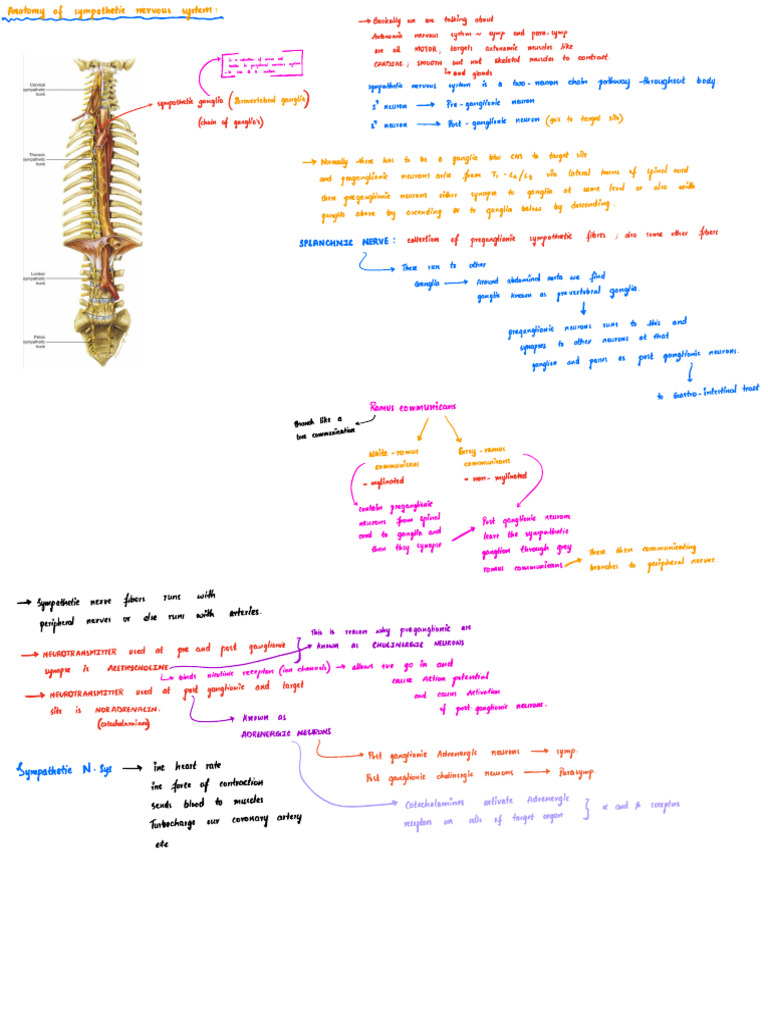 Anatomy of sympathetic nervous system :
→ Basically we are talking about
Autonomic nervous system ~ symp and para-symp
are all MOTOR; targets autonomic muscles like
CARDIAC; SMOOTH but not skeletal muscles to contract.
and glands
sympathetic nervous system is a two-neuron chain pathway throughout body.
neuron → Pre-ganglionic neuron
neuron → Post-ganglionic neuron (goes to target site)
Cervical
sympathetic
trunk
Thoracic
sympathetic
trunk
Lumbar
sympathetic
trunk
Pelvic
sympathetic
trunk
is a collection of nerve cell
bodies in peripheral nervous system
sympathetic ganglia (Paravertebral ganglia)
(chain of ganglia's)
→ Normally there has to be a ganglia b/w CNS to target site
and preganglionic neurons arise from T1 - L2/L3 via lateral horns of spinal cord
these preganglionic neurons either synapse to ganglia at same level or also with
ganglia above by ascending or to ganglia below by descending.
SPLANCHNIC NERVE: collection of preganglionic sympathetic fibres ; also some other fibers
→ These run to other
Ganglia → Around abdominal aorta we find
ganglia known as prevertebral ganglia.
preganglionic neurons runs to this and
synapses to other neurons at that
ganglia and passes as post ganglionic neurons.
to Gastro-intestinal tract
Ramus communicans
Branch like a
communication
White-ramus
communicans
~ mylinated
Grey-ramus
communicans
~ non-mylinated
contain preganglionic
neurons from spinal
cord to ganglia and
then they synapse
Post ganglionic neurons
leave the sympathetic
ganglion through grey
ramus communicans
These then communicating
branches to peripheral nerves.
→ Sympathetic nerve fibers runs with
peripheral nerves or else runs with arteries.
This is reason why preganglionic are
known as CHOLINERGIC NEURONS
→ NEUROTRANSMITTER used at pre and post ganglionic
synapse is ACETYLCHOLINE
binds nicotinic receptors (ion channels) → allows +ve go in and
cause Action potential
and causes Activation
of post-ganglionic neurons.
→ NEUROTRANSMITTER used at post ganglionic and target
site is NORADRENALIN.
(catecholamines)
→ known as
ADRENERGIC NEURONS
Post ganglionic Adrenergic neurons → symp.
Post ganglionic cholinergic neurons → Parasymp.
Catecholamines activate Adrenergic
receptors on cells of target organ } α and β receptors
Sympathetic N.Sys → inc heart rate
inc force of contraction
sends blood to muscles
Turbocharge our coronary artery
etc